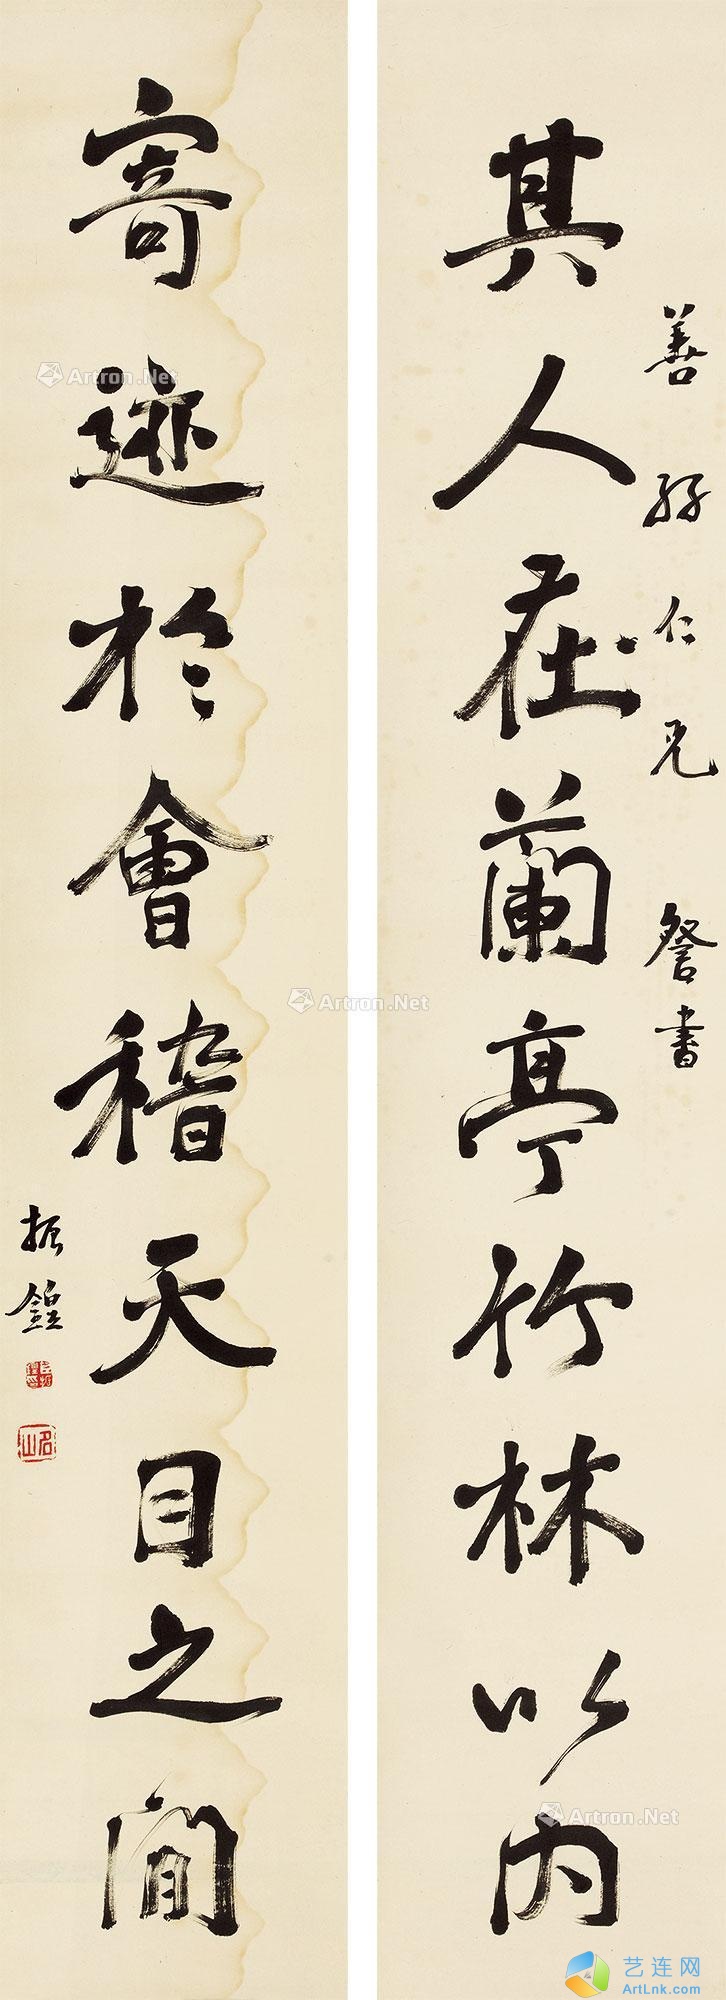 其人在蘭亭竹林以内
善孖仁兄 詧書
寄迹於會稽天目之間
振鍠
名山
Artron.Net
Artron.Net
Artron.Net
Artron.Net
艺连网
ArtLnk.com